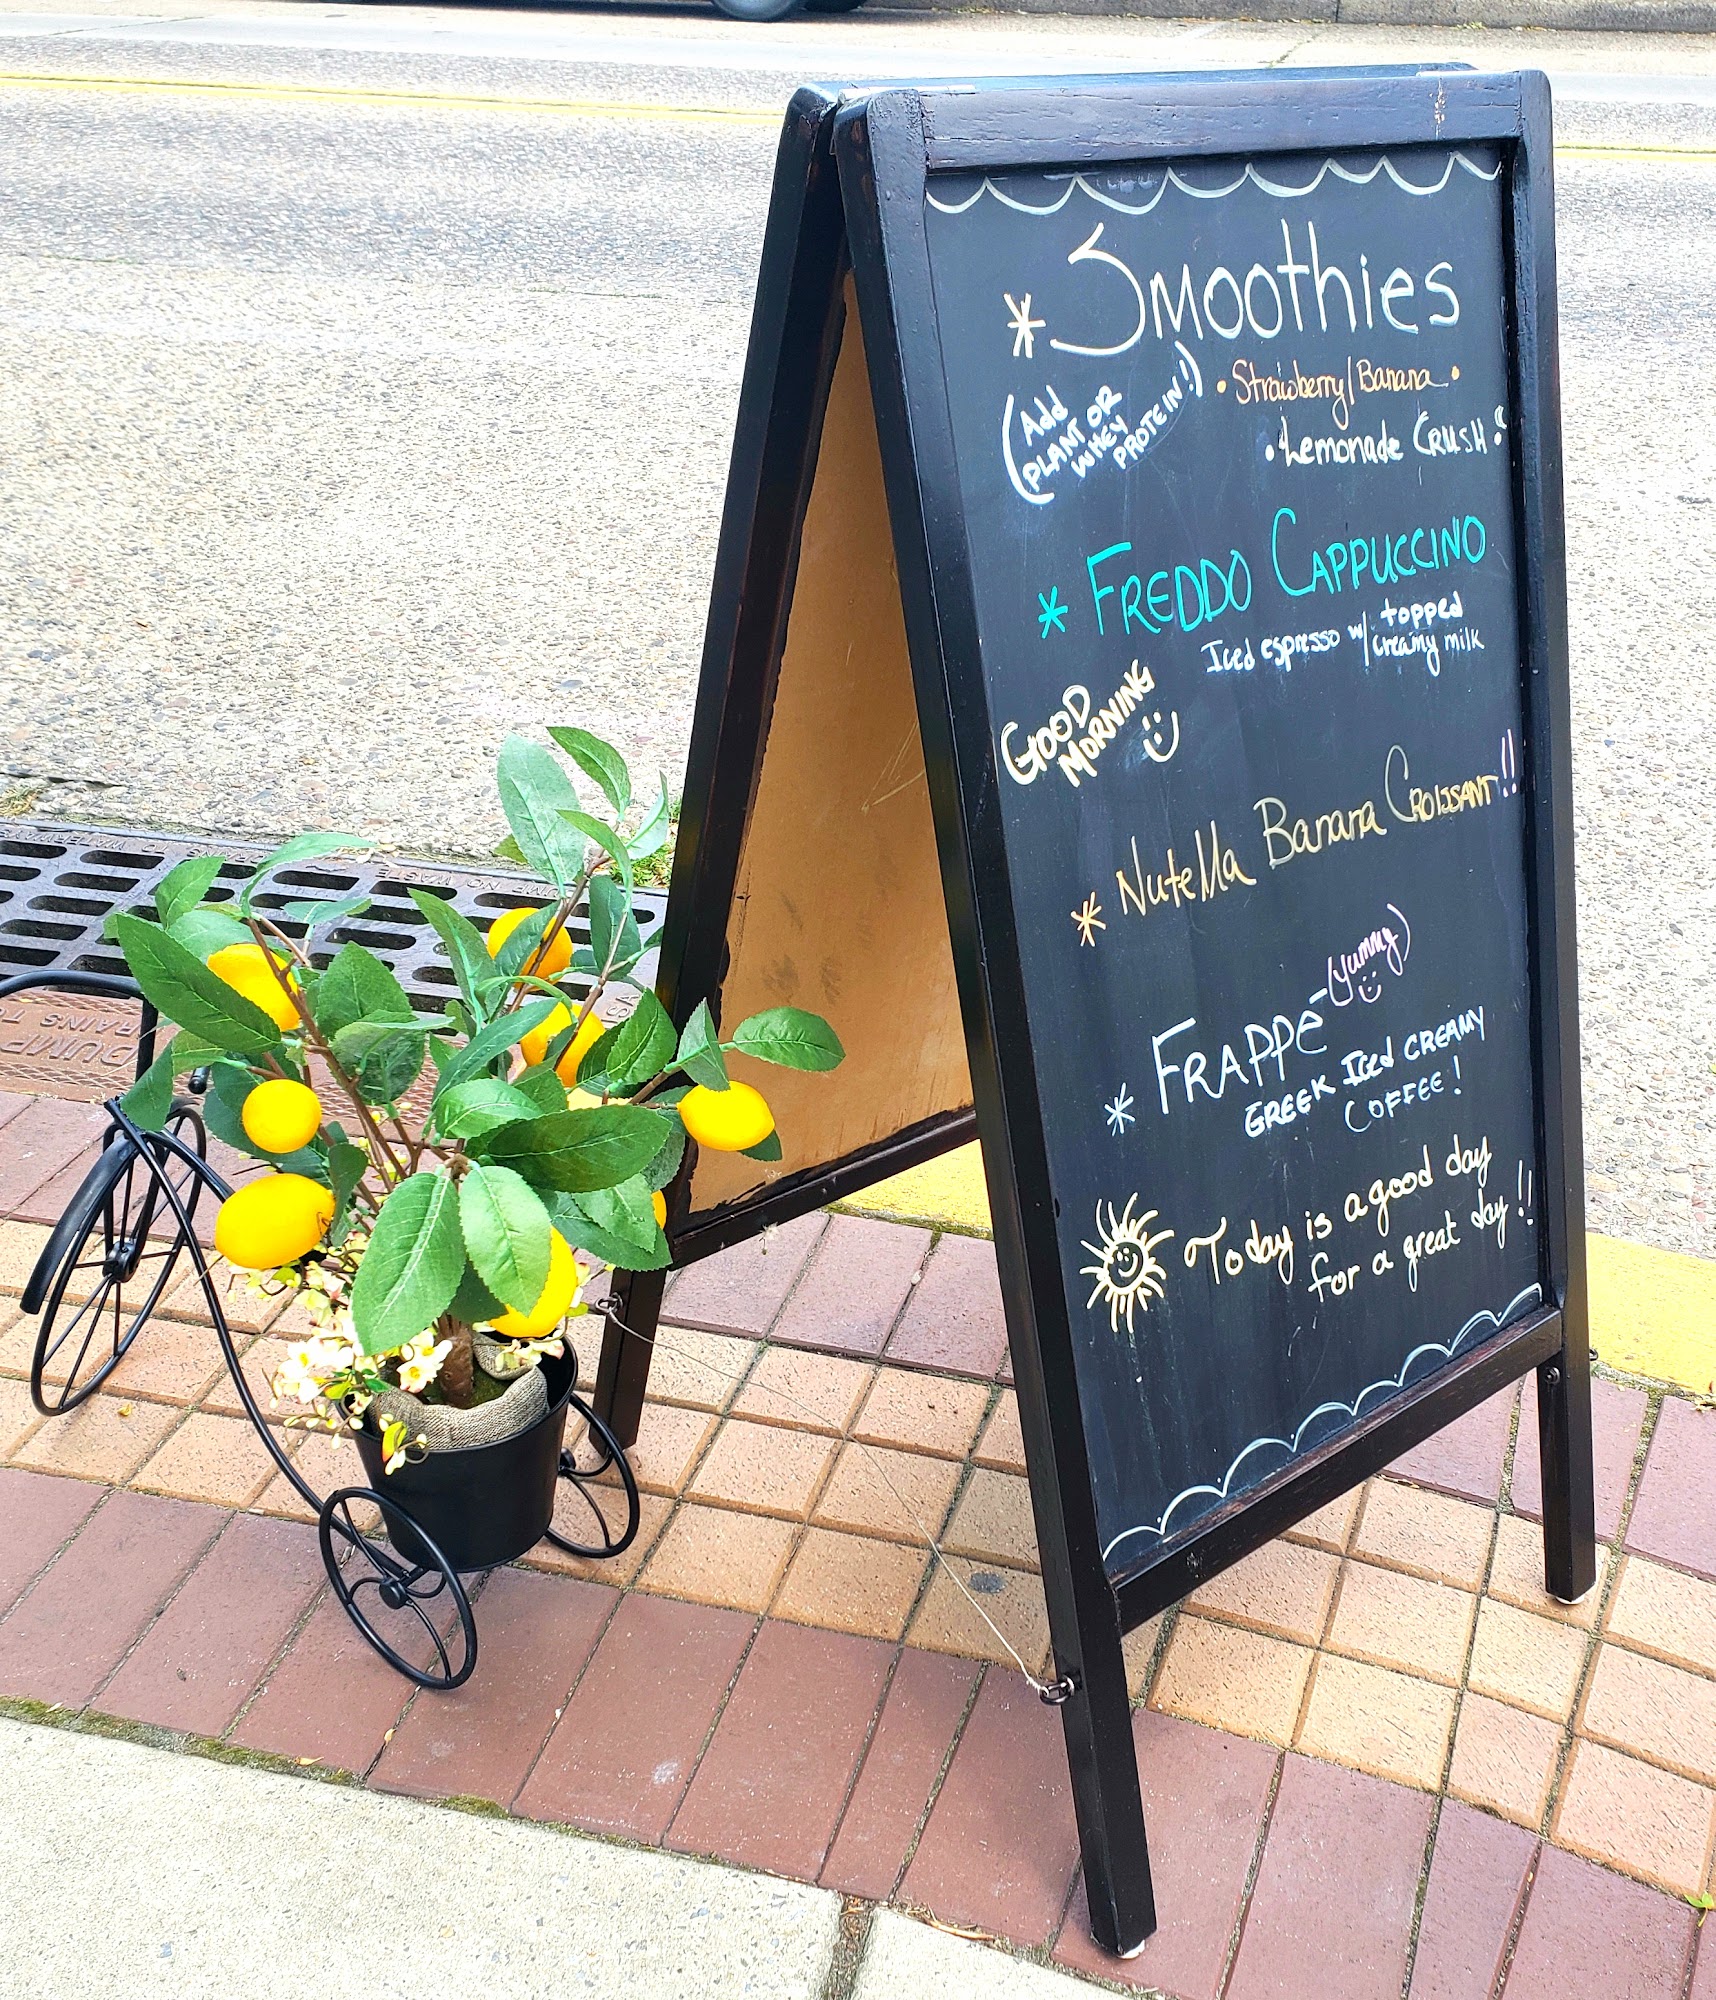 * Smoothies
(Add
PLANT OR
WHEY
PROTEIN!)
• Strawberry/Banana •
• Lemonade CRUSH •
* FREDDO CAPPUCCINO
Iced espresso w/ topped
creamy milk
GOOD
MORNING
* Nutella Banana CROISSANT!!
* FRAPPÉ (yummy)
GREEK ICED CREAMY
COFFEE!
Today is a good day
for a great day!!
DUMP NO WASTE
DRAINS TO WATERWAYS
DUMP
DRAINS TO